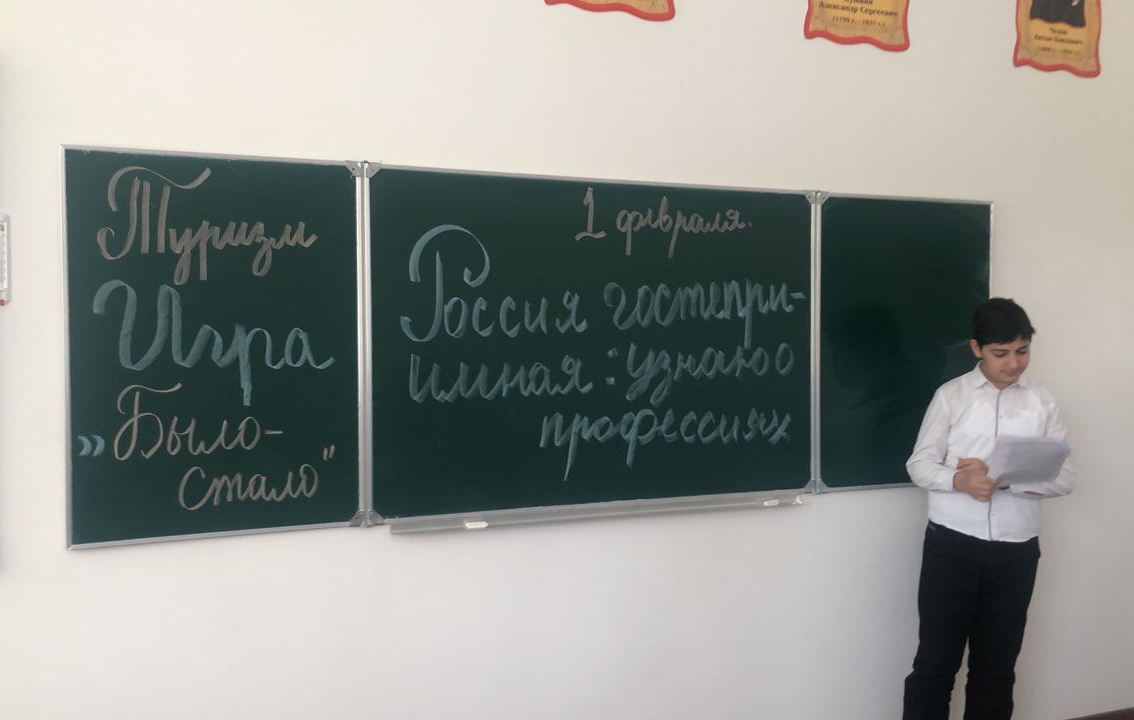 Пушкин
Александр Сергеевич
(1799 г. - 1837 г.)
Чехов
Антон Павлович
Туризм
Игра
„Было-
стало"
1 февраля.
Россия гостепри-
имная: узнаю о
профессиях